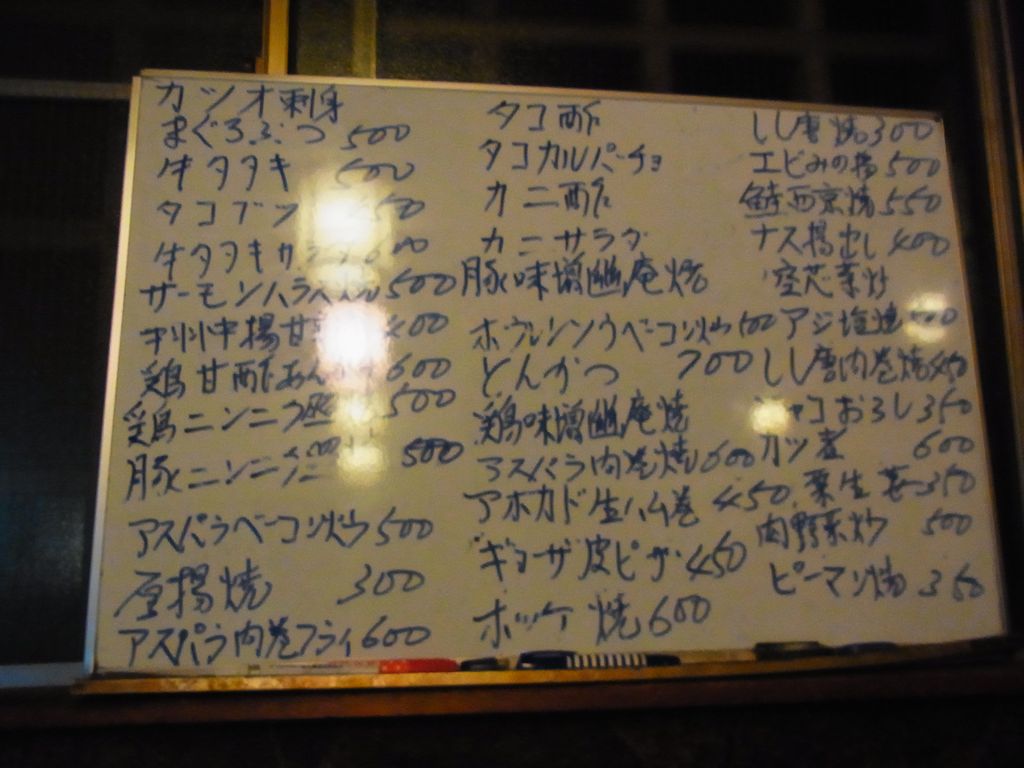 カツオ刺身
まぐろぶつ 500
牛タタキ 500
タコブツ 50
牛タタキ
サーモンハラス 500
揚甘 400
鶏甘酢あん 600
鶏ニンニク 500
豚ニンニク 500
アスパラベーコン炒 500
厚揚焼 300
アスパラ肉巻フライ 600
タコ酢
タコカルパーチョ
カニ酢
カニサラダ
豚味噌幽庵焼
ホウレンソウベーコン炒
とんかつ 700
鶏味噌幽庵焼
アスパラ肉巻焼 600
アボカド生ハム巻 450
ギョーザ皮ピザ 450
ホッケ焼 600
しし唐焼 300
エビみの揚 500
鮭西京焼 550
ナス揚出し 400
空芯菜炒
アジ塩焼
しし唐肉巻焼
ジャコおろし 350
カツ煮 600
粟生麩 350
肉野菜炒 500
ピーマン焼 350